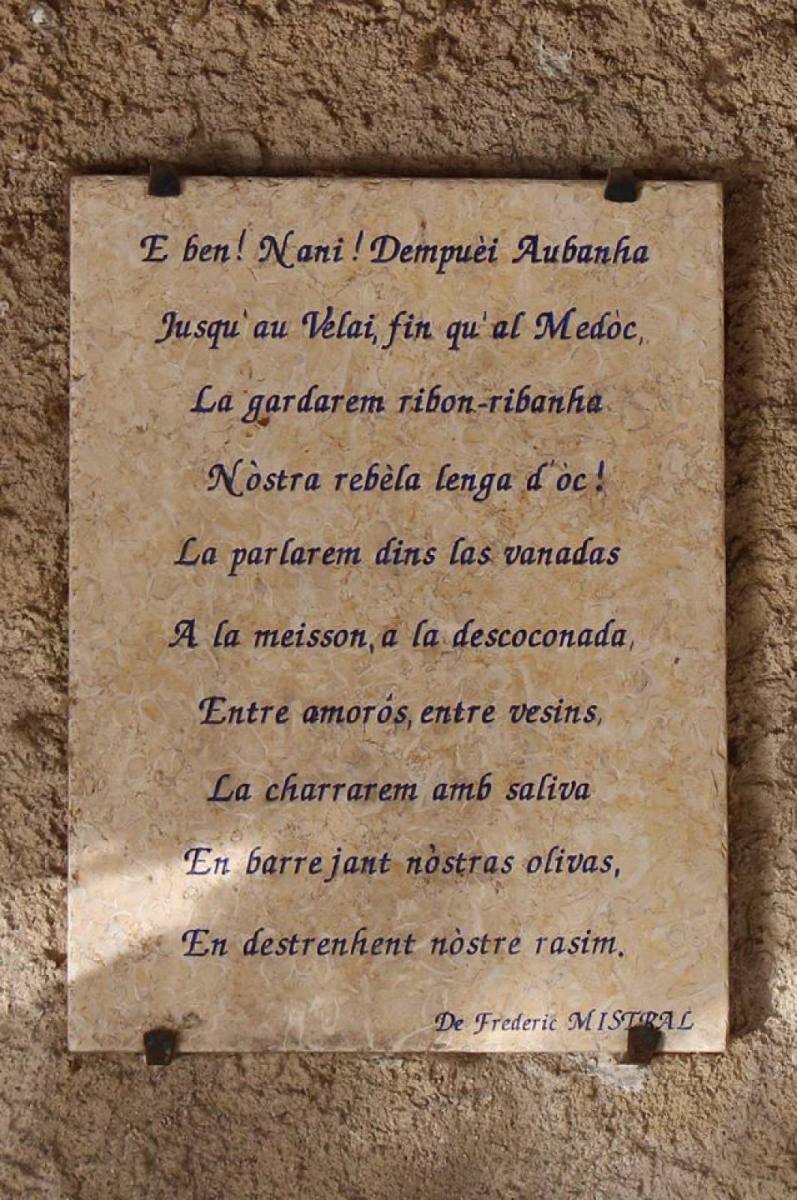 E ben! Nani! Dempuèi Aubanha
Jusqu'au Velai, fin qu'al Medòc,
La gardarem ribon-ribanha
Nòstra rebèla lenga d'òc!
La parlarem dins las vanadas
A la meisson, a la descoconada,
Entre amorós, entre vesins,
La charrarem amb saliva
En barrejant nòstras olivas,
En destrenhent nòstre rasim.
De Frederic MISTRAL